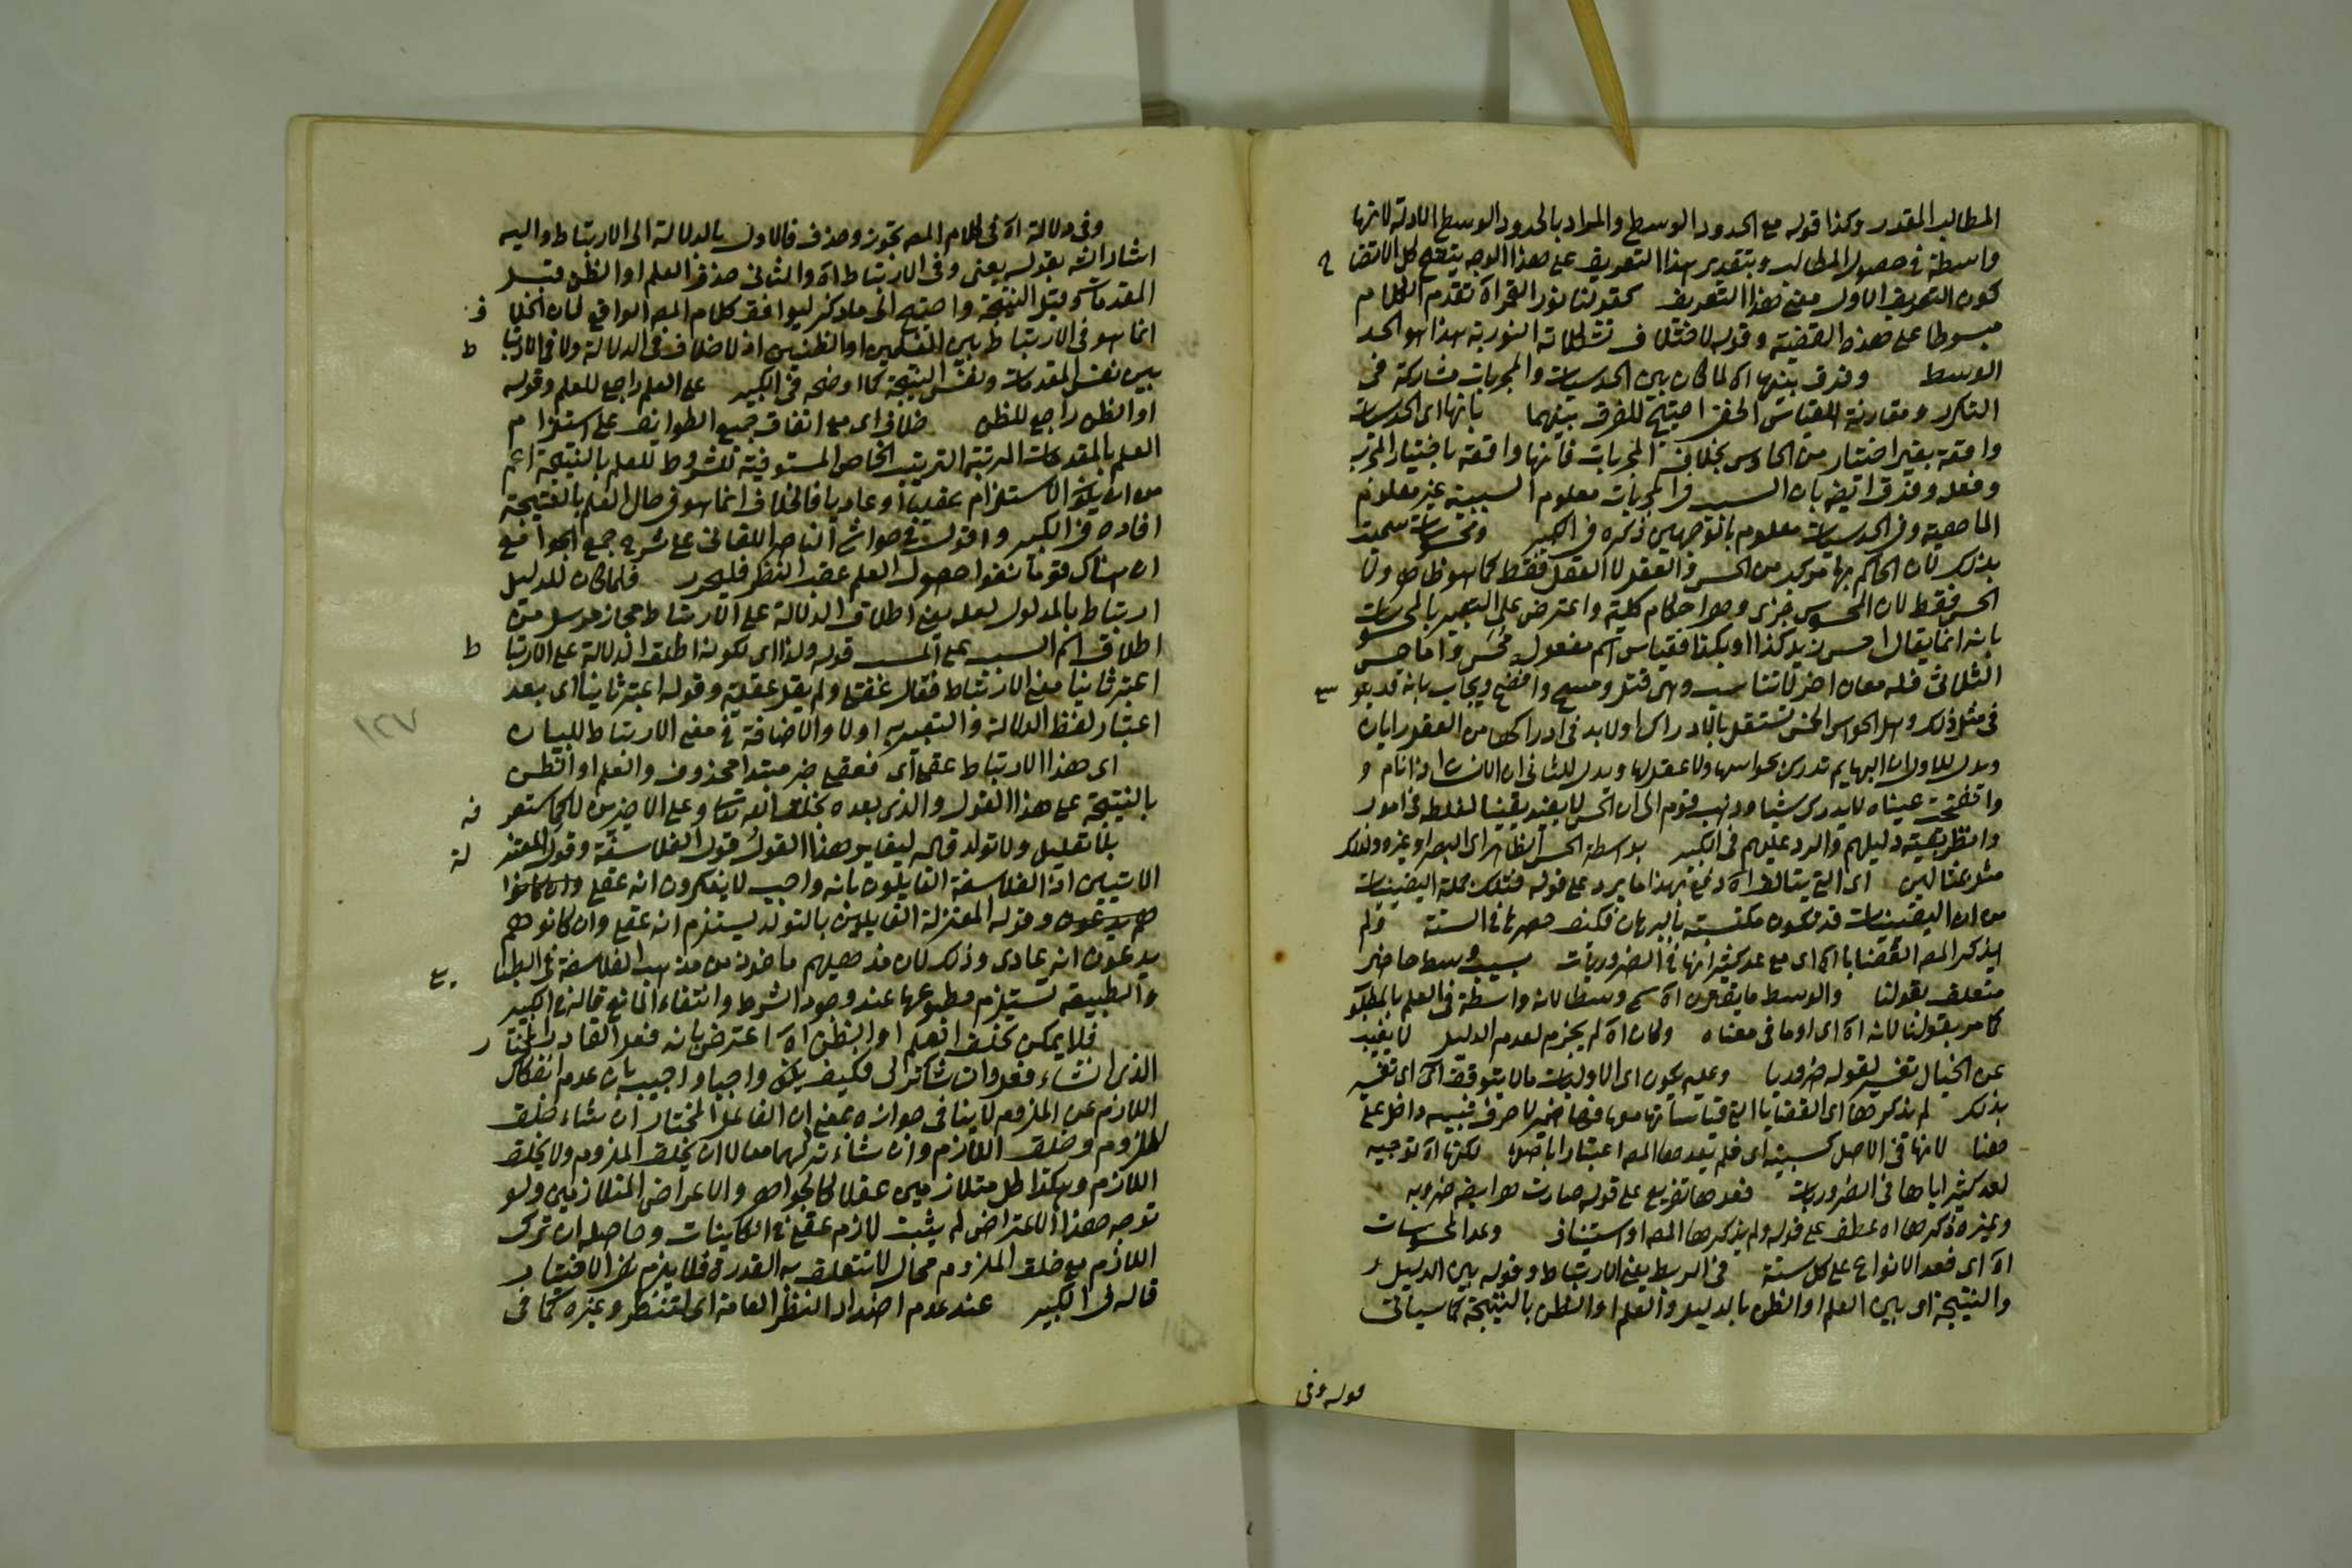 المطالب المقدر وكذا قوله مع الحدود الوسط والمراد بالحدود الوسط الادلة لانها
واسطة في حصول المطالب وبتقدير هذا التعريف على هذا الوجه يتضح كل الاتضا ح
كون التعريف الاول معنى هذا التعريف كقولنا نور القمر اه تقدم الكلام
مبسوطا على هذه القضية وقوله لاختلاف تشكلاته النورية هذا هو الحد
الوسط وفرق بينهما اه لما كان بين الحدسيات والمجربات مشاركة في
التكرر ومقارنة القياس الخفي احتيج للفرق بينهما بانها اى الحدسيات
واقعة بغير اختيار من الحادس بخلاف المجربات فانها واقعة باختيار المجرب
وفعله وفرق ايضا بان السبب في المجربات معلوم السببية غير معلوم
الماهية وفي الحدسيات معلوم بالوجهين ذكره في الكبير ومحسوسات سميت
بذلك لان الحاكم بها مركب من الحس والعقل لا العقل فقط كما هو ظاهر ولا
الحس فقط لان المحسوس جزى وهو احكام كلية واعترض على التعبير بالمحسوسات
بانه انما يقال احسن زيد كذا او بكذا فقياس اسم مفعوله محس واما حس
الثلاثي فله معان اخر لا تناسب وهى قتل ومسح واضح ويجاب بانه قد سمع
في مثل ذلك وهل الحواس الخمس تستقل بالادراك اولا بد في ادراكها من العقل رايان
ويدل للاول ان البهايم تدرك بحواسها ولا عقل لها ويدل للثاني ان الانسان اذا نام و
وانفتحت عيناه لا يدرك شيئا وذهب قوم الى ان الحس لا يفيد يقينا لغلطه في امور
وانظر بقية دليلهم والرد عليهم في الكبير بواسطة الحس الظاهر اى البصر او غيره ولذلك
مثل بمثالين اى التي يتالف اه دفع بهذا ما يرد على قوله فتلك جملة اليقينيات
من ان اليقينيات قد تكون مكتسبة بالبرهان فكيف حصرها في الستة ولم
يذكر المصـ القضايا اه اى مع عد كثير انها في الضروريات بسبب وسط حاضر
متعلق بقولنا والوسط ما يقترن اه سمى وسطا لانه واسطة في العلم بالمطلوب
كما مر بقولنا لانه اه اى او ما في معناه وكان اه لم يجزم لعدم الدليل لا يغيب
عن الخيال تفسير لقوله ضروريا وعليه يكون اى الاوليات مالا يتوقف اه اى تفسير
بذلك لم يذكرها اى القضايا التي قياساتها معها فها ضمير لا حرف تنبيه داخل على
هنا لانها في الاصل كسبية اى فلم يعدها المصـ اعتبارا باصلها لكنها اه توجيه
لعد كثير اياها في الضروريات فعدها تفريع على قوله صارت هو ايضا ضروريه
وغيره ذكرها اه عطف على قوله ولم يذكرها المصـ او استيناف وعد المحسوسات
اه اى فعد الانواع على كل ستة في الربط يعنى الارتباط وقوله بين الدليل
والنتيجة اى بين العلم او الظن بالدليل والعلم او الظن بالنتيجة كما سياتي
قوله وفي
وفي دلالة اه في كلام المصـ تجوز وحذف فالاول بالدلالة الى الارتباط واليه
اشار الشـ بقوله يعنى وفي الارتباط اه والثاني حذف العلم او الظن قبل
المقدمات وقبل النتيجة واحتيج الى ما ذكر ليوافق كلام المصـ الواقع لان الخلا ف
انما هو في الارتباط بين العلمين او الظنين اذ لا خلاف في الدلالة ولا في الارتبا ط
بين نفس المقدمات ونفس النتيجة كما اوضحه في الكبير على العلم راجع للعلم وقوله
او الظن راجع للظن خلاف اى مع اتفاق جميع الطوايف على استلزام
العلم بالمقدمات المرتبة الترتيب الخاص المستوفية للشروط للعلم بالنتيجة اعم
من ان يكون الاستلزام عقليا او عاديا فالخلاف انما هو في حال العلم بالنتيجة
افاده في الكبير واقول في حواشي الناصر اللقاني على شرح جمع الجوامع
ان هناك قوما نفوا حصول العلم عقب النظر فليحرر فلما كان للدليل
ارتباط بالمدلول لعله يعنى اطلاق الدلالة على الارتباط مجاز مرسل من
اطلاق اسم السبب على المسبب قوله ولذا اى لكونه اطلق الدلالة على الارتبا ط
اعتبر ثانيا معنى الارتباط فقال عقلى ولم يقل عقلية وقوله اعتبر ثانيا اى بعد
اعتبار لفظ الدلالة والتعبير به اولا والاضافة في معنى الارتباط للبيان
اى هذا الارتباط عقلى اى فعقلى خبر مبتدا محذوف والعلم او الظن
بالنتيجة على هذا القول والذى بعده بخلق الله تعالى وعلى الاخيرين لا كما ستعر فه
بلا تعليل ولا تولد قاله ليغاير هذا القول قول الفلاسفة وقول المعتز لة
الاتيين اذ الفلاسفة القايلون بانه واجب لا ينكرون انه عقلى وان كانوا
هم يدعون وقوله المعتزلة القايلون بالتولد يستلزم انه عقلى وان كانوا هم
يدعون انه عادى وذلك لان مذهبهم ماخوذ من مذهب الفلاسفة في الطبا يع
والطبيعة تستلزم مطبوعها عند وجود الشرط وانتفاء المانع قاله في الكبير
فلا يمكن تخلف العلم او الظن اه اعترض بانه فعل القادر المختار
الذى ان شاء فعل وان شا ترك فكيف يكون واجبا واجيب بان عدم انفكاك
اللازم عن الملزوم لا ينافى جوازه بمعنى ان الفاعل المختار ان شاء خلق
الملزوم وخلق اللازم وان شاء تركهما معا لا ان يخلق الملزوم ولا يخلق
اللازم وهكذا كل متلازمين عقلا كالجواهر والاعراض المتلازمين ولو
توجه هذا الاعتراض لم يثبت لازم عقلى في الكاينات وحاصله ان ترك
اللازم مع خلق الملزوم محال لا تتعلق به القدرة فلا يلزم نفى الاختيار
قاله في الكبير عند عدم اضداد النظر العامة اى للنظر وغيره كما في
١٢٧